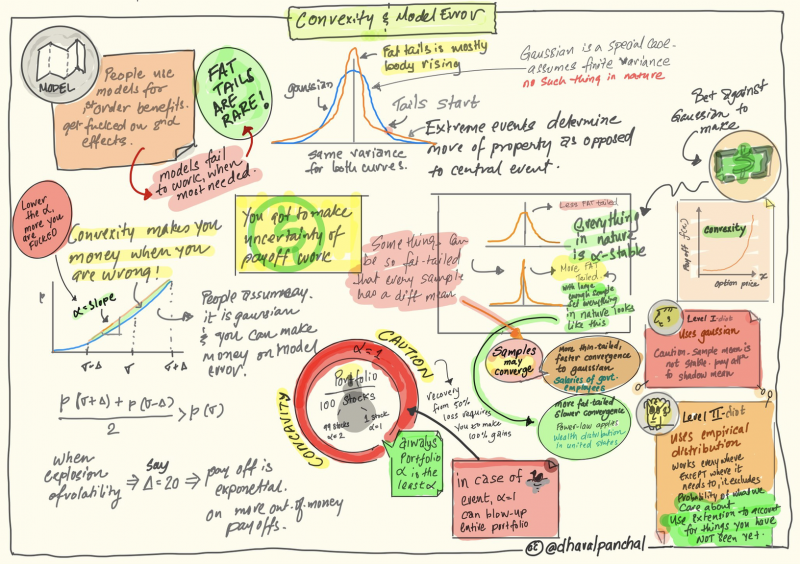 Convexity & Model Error
MODEL
People use
models for
1st order benefits.
get fucked on 2nd
effects.
FAT
TAILS
ARE
RARE!
models fail
to work, when
most needed.
Fat tails is mostly
body rising
gaussian
Tails start
same variance
for both curves.
Gaussian is a special case.
assumes finite variance
no such thing in nature
Extreme events determine
more of property as opposed
to central event.
Bet against
Gaussian to
make
$
Lower
the α,
more you
are
FUCKED
Convexity makes you
money when you
are wrong!
P
α = slope
σ-Δ
σ
σ+Δ
People assume
it is gaussian
& you can make
money on Model
Error.
You got to make
uncertainty of
payoff work
Something can
be so fat-tailed
that every sample
has a diff mean
Less FAT tailed
More FAT
Tailed
Everything
in nature
is α-stable
With large
enough sample
set everything
in nature looks
like this
Payoff f(x)
convexity
option price
x
Level I-diot
uses gaussian
Caution- Sample mean is
not stable. pay attn
to shadow mean
Samples
may
converge
More thin-tailed,
faster convergence
to gaussian
Salaries of govt.
employees
more fat-tailed
Slower convergence
Power-law applies
Wealth distribution
in united states
Level II-diot
uses empirical
distribution
works everywhere
EXCEPT where it
needs to, it excludes
Probability of what we
care about
Use extension to account
for things you have
NOT seen yet.
CAUTION
CONCAVITY
α = 1
Portfolio
100 stocks
99 stocks
α=2
1 stock
α=1
recovery
from 50%
loss requires
you to make
100% gains
Always
Portfolio
α is the
least α
in case of
event, α=1
can blow-up
entire portfolio
p(σ+Δ) + p(σ-Δ)
2
> p(σ)
When
explosion
of volatility
⇒
Say
Δ = 20
⇒
pay off is
exponential.
on more out-of-money
payoffs.
@dharalpanchal